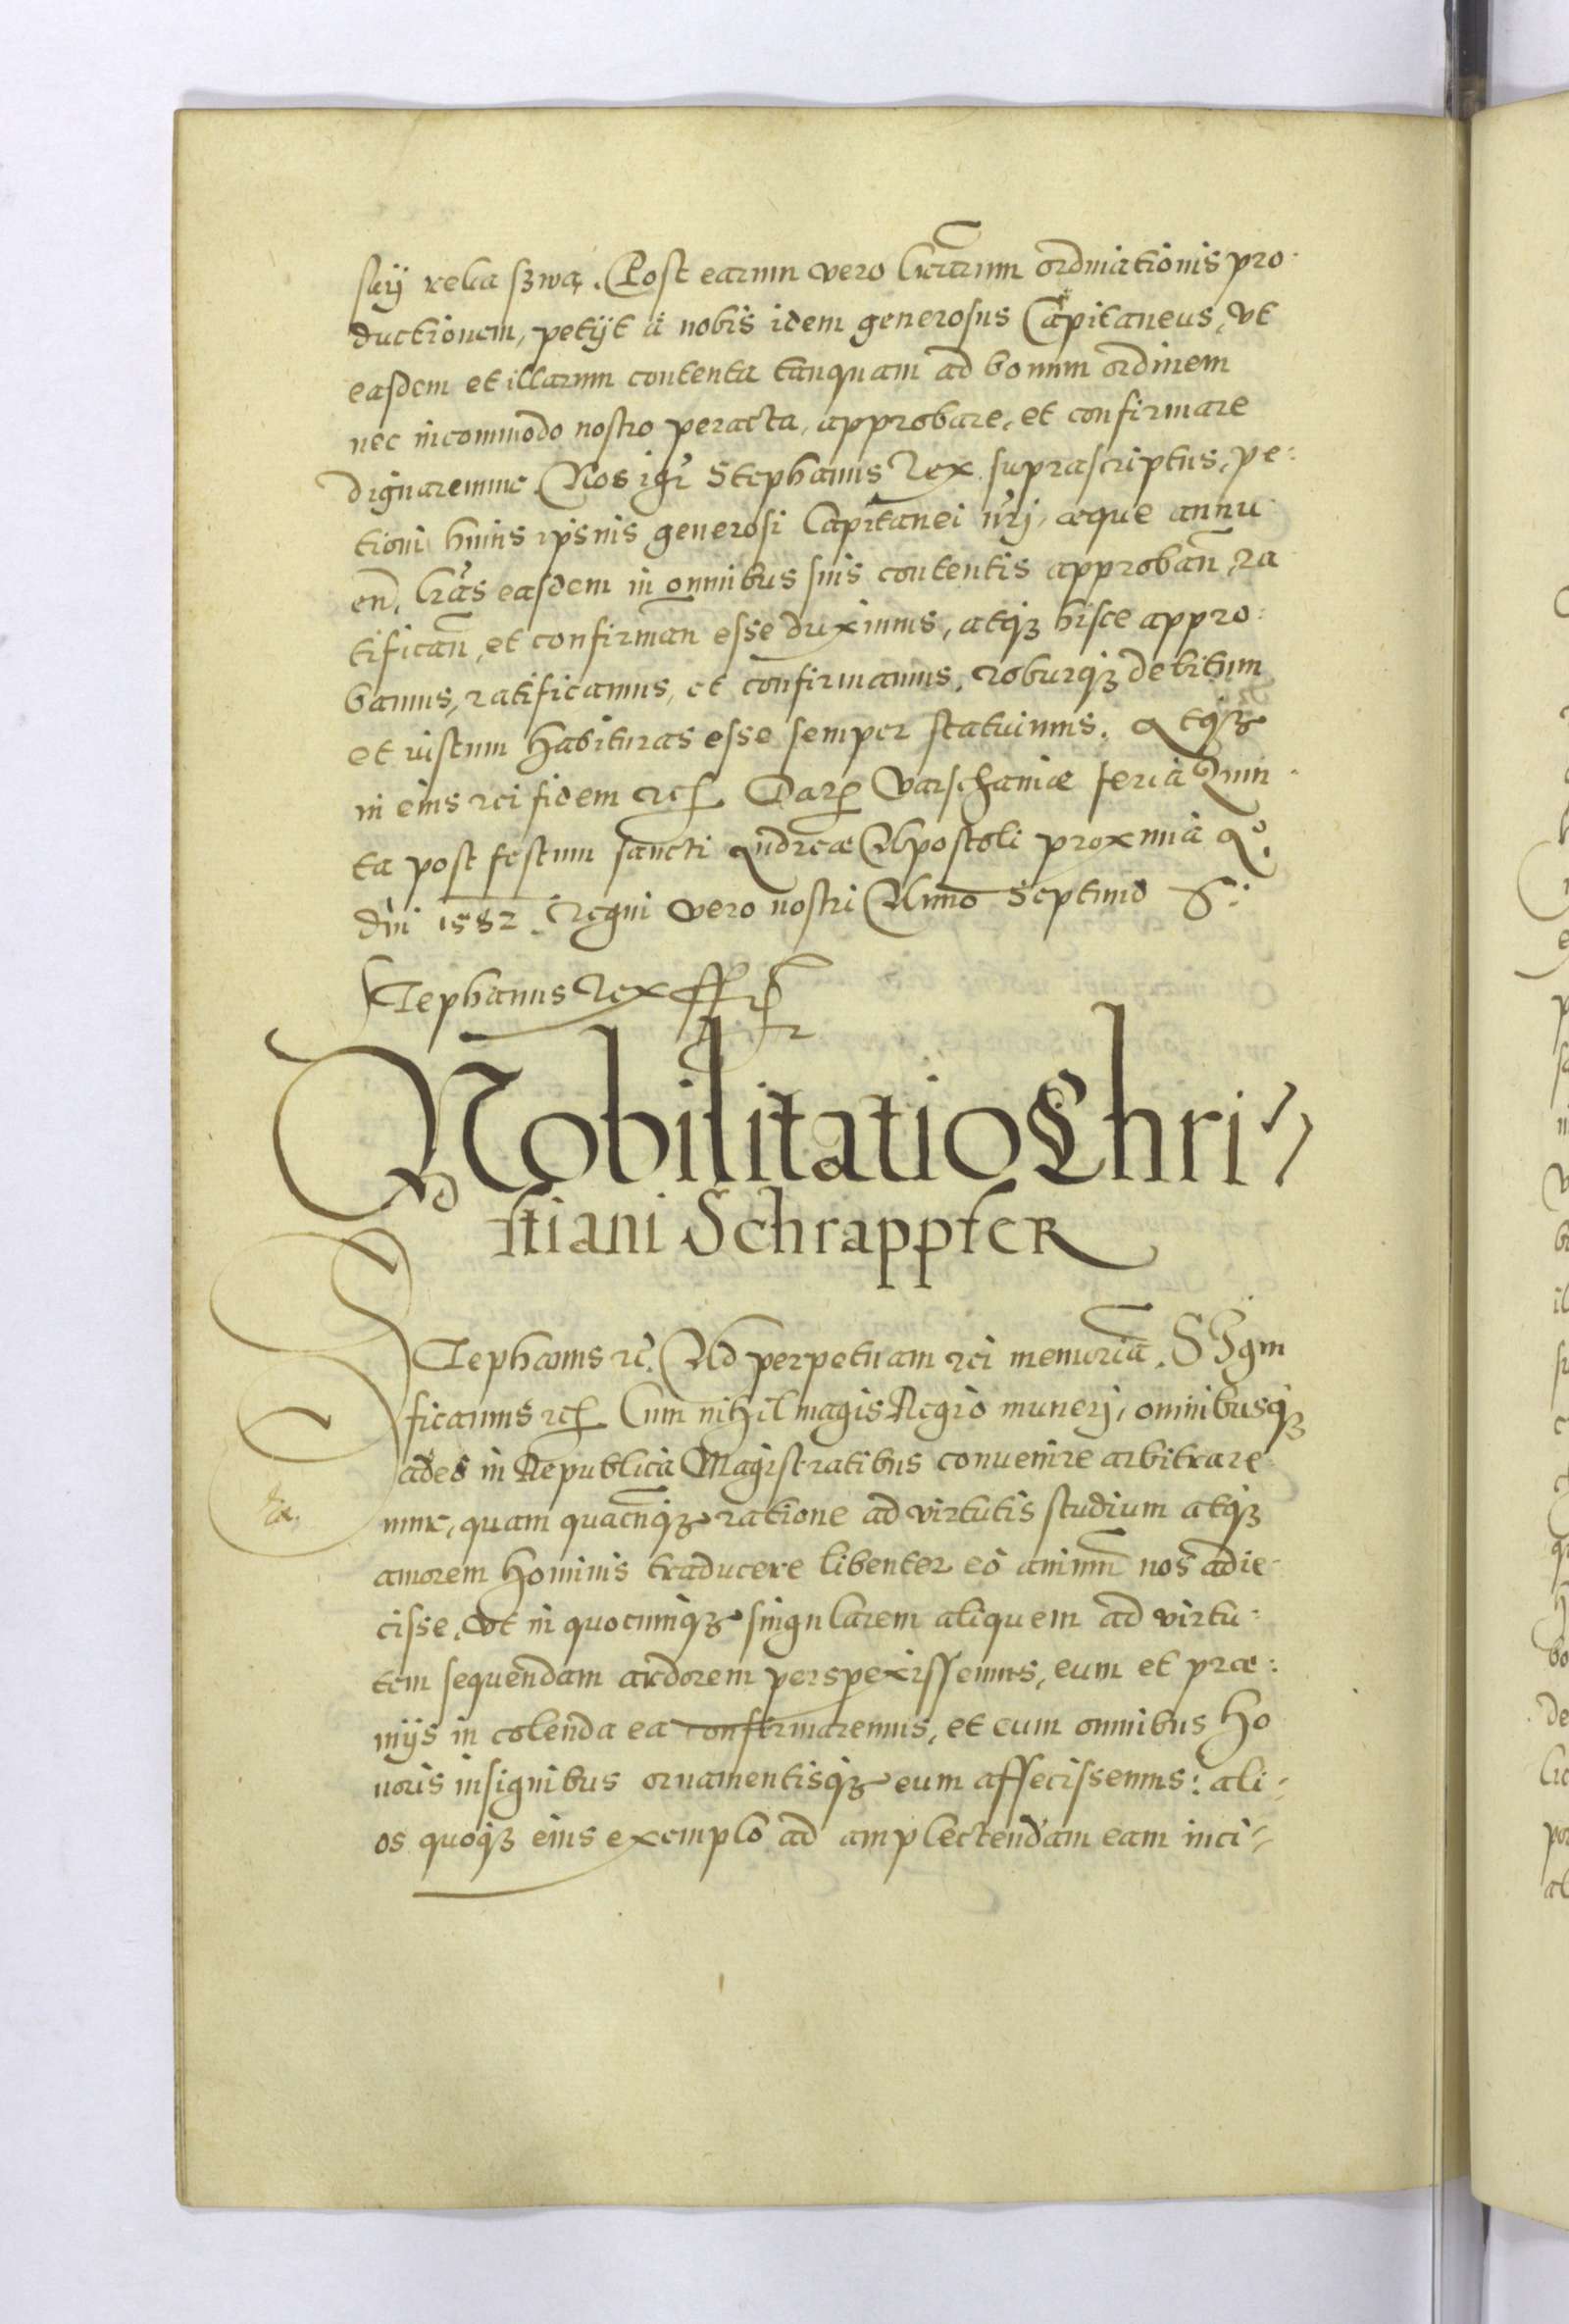 skij reka szwą. Post earum vero l̃rarum ordinationis pro-
ductionem, petijt à nobis idem generosus Capitaneus, vt
easdem et illarum contenta tanquam ad bonum ordinem
nec incommodo nostro peracta, approbare, et confirmare
dignaremur. Nos igr̃ Stephanus Rex suprascriptus, pe:
tioni huius ipsius generosi Capitanei nr̃j, æque annu
eñ, l̃ras easdem in omnibus suis contentis approbañ, ra
tificañ, et confirmañ esse duximus, atq3 hisce appro:
bamus, ratificamus, et confirmamus, roburq3 debitum
et iustum habituras esse semper statuimus. Atq3
in eius rei fidem etc. Dat. Varschauiæ feria Quin-
ta post festum sancti Andreæ Apostoli proxima Aº.
dñi 1582. Regni vero nostri Anno Septimo
Stephanus Rex
Nobilitatio Chri-
stiani Schrappfer
Stephanus etc. Ad perpetuam rei memoriã. SIgni
ficamus etc. Cum nihil magis Regio munerj, omnibusq3
adeò in Republica Magistratibus conuenire arbitrare
mur, quam quacũq3 ratione ad virtutis studium atq3
amorem hominis traducere libenter eò animũ nos adie-
cisse, vt in quocunq3 singularem aliquem ad virtu:
tem sequendam ardorem perspexissemus, eum et præ:
mijs in colenda ea confirmaremus, et cum omnibus ho
noris insignibus ornamentisq3 eum affecissemus: ali-
os quoq3 eius exemplo ad amplectendam eam inci-